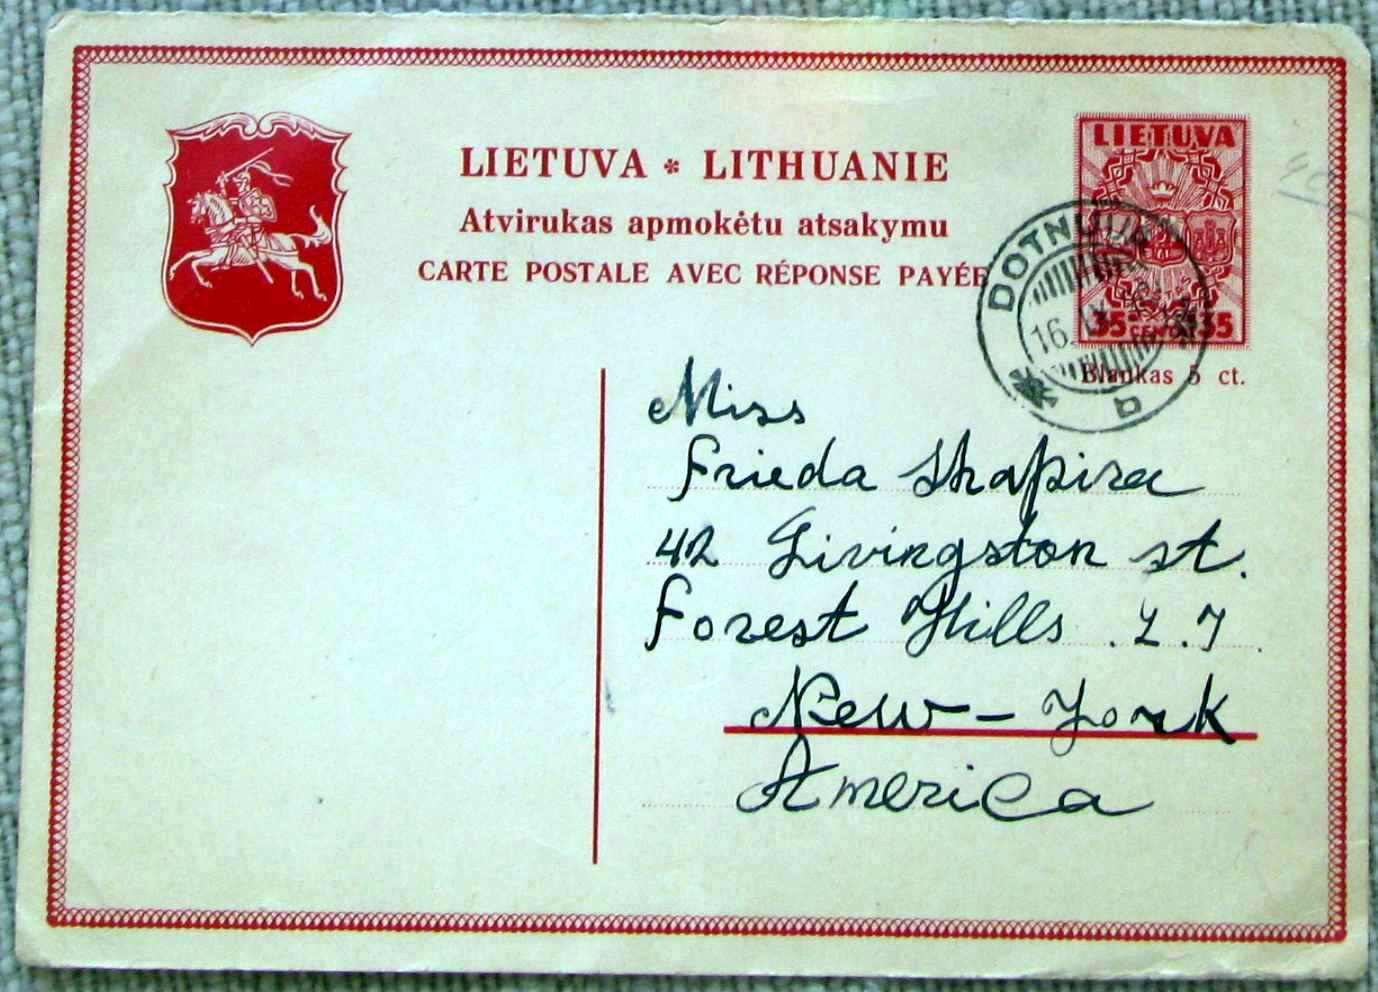 LIETUVA * LITHUANIE
Atvirukas apmokėtu atsakymu
CARTE POSTALE AVEC RÉPONSE PAYÉE
LIETUVA
35 CENTAI 35
Blankas 5 ct.
DOTNUVA
16. IX
b
Miss
Frieda Shapira
42 Livingston st.
Forest Hills . L. I.
New-York
America